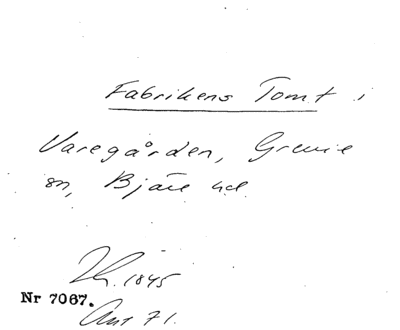 Fabrikens Tomt i
Varegården, Grevie
sn, Bjäre hd.
Th. 1845
Nr 7067.
Ant 71.